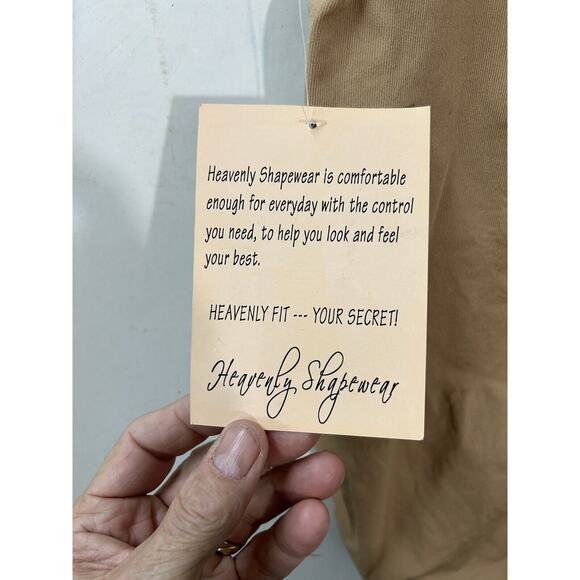 Heavenly Shapewear is comfortable
enough for everyday with the control
you need, to help you look and feel
your best.
HEAVENLY FIT --- YOUR SECRET!
Heavenly Shapewear